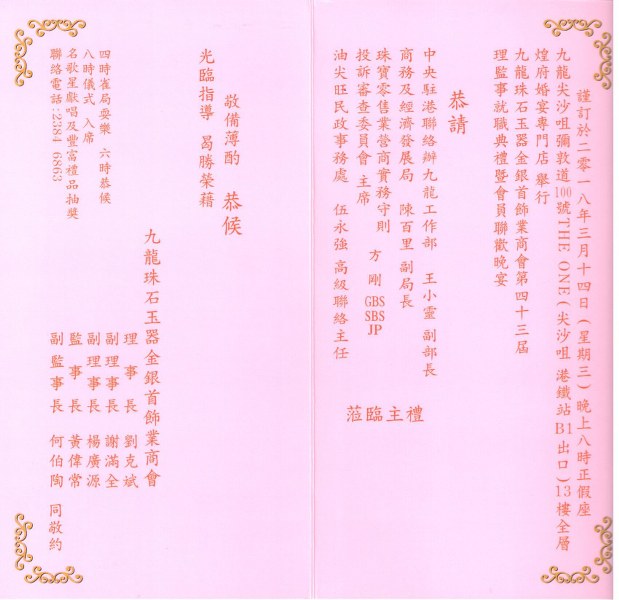 謹訂於二零一八年三月十四日(星期三)晚上八時正假座
九龍尖沙咀彌敦道100號THE ONE(尖沙咀 港鐵站B1出口)13樓全層
煌府婚宴專門店 舉行
九龍珠石玉器金銀首飾業商會第四十三屆
理監事就職典禮暨會員聯歡晚宴
恭請
中央駐港聯絡辦九龍工作部 王小靈 副部長
商務及經濟發展局 陳百里 副局長
珠寶零售業營商實務守則
投訴審查委員會 主席 方 剛 GBS SBS JP
油尖旺民政事務處 伍永強 高級聯絡主任
蒞臨主禮
敬備薄酌 恭候
光臨指導 曷勝榮藉
四時雀局耍樂 六時恭候
八時儀式 入席
名歌星獻唱及豐富禮品抽獎
聯絡電話:2384 6863
九龍珠石玉器金銀首飾業商會
理事長 劉克斌
副理事長 謝滿全
副理事長 楊廣源
監事長 黃偉常
副監事長 何伯陶 同敬約